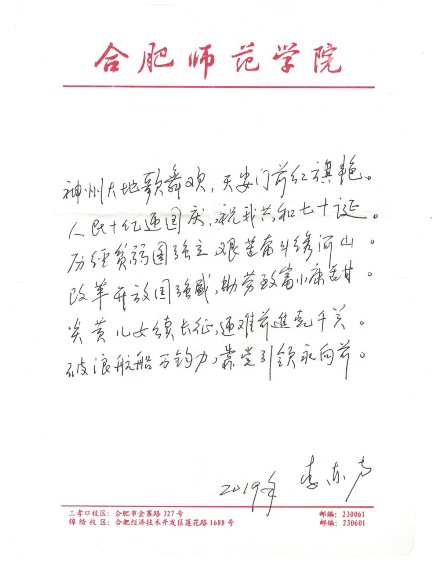 合肥师范学院
神州大地歌舞欢，天安门前红旗艳。
人民十亿迎国庆，祝我共和七十诞。
历经贫弱图强立 艰苦奋斗绣河山。
改革开放国强盛，勤劳致富小康甘。
炎黄儿女续长征，迎难前進克千关。
破浪航船万钧力，靠党引领永向前。
2019年 李
三孝口校区：合肥市金寨路 327 号 邮编：230061
锦绣校区：合肥经济技术开发区莲花路 1688 号 邮编：230601